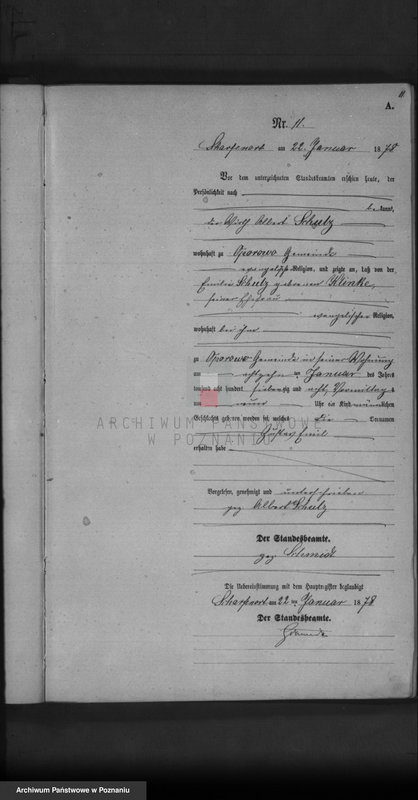 11
A.
Nr. 11.
Scharfenort am 22. Januar 1878
Vor dem unterzeichneten Standesbeamten erschien heute, der
Persönlichkeit nach
be kannt,
der Wirth Albert Schulz
wohnhaft zu Oporowo Gemeinde
evangelischer Religion, und zeigte an, daß von der
Emilie Schulz geborenen Klinke,
seiner Ehefrau
evangelischer Religion,
wohnhaft bei ihm
zu Oporowo Gemeinde in seiner Wohnung
am achtzehn ten Januar des Jahres
tausend acht hundert siebenzig und acht, Vormittags
um neun Uhr ein Kind männlichen
Geschlechts geboren worden sei, welches die Vornamen
Emil
erhalten habe
ARCHIWUM PAŃSTWOWE
W POZNANIU
Vorgelesen, genehmigt und unterschrieben
gez. Albert Schulz
Der Standesbeamte.
gez. Schmidt
Die Uebereinstimmung mit dem Hauptregister beglaubigt
Scharfenort am 22 ten Januar 1878
Der Standesbeamte.
Archiwum Panstwowe w Poznaniu